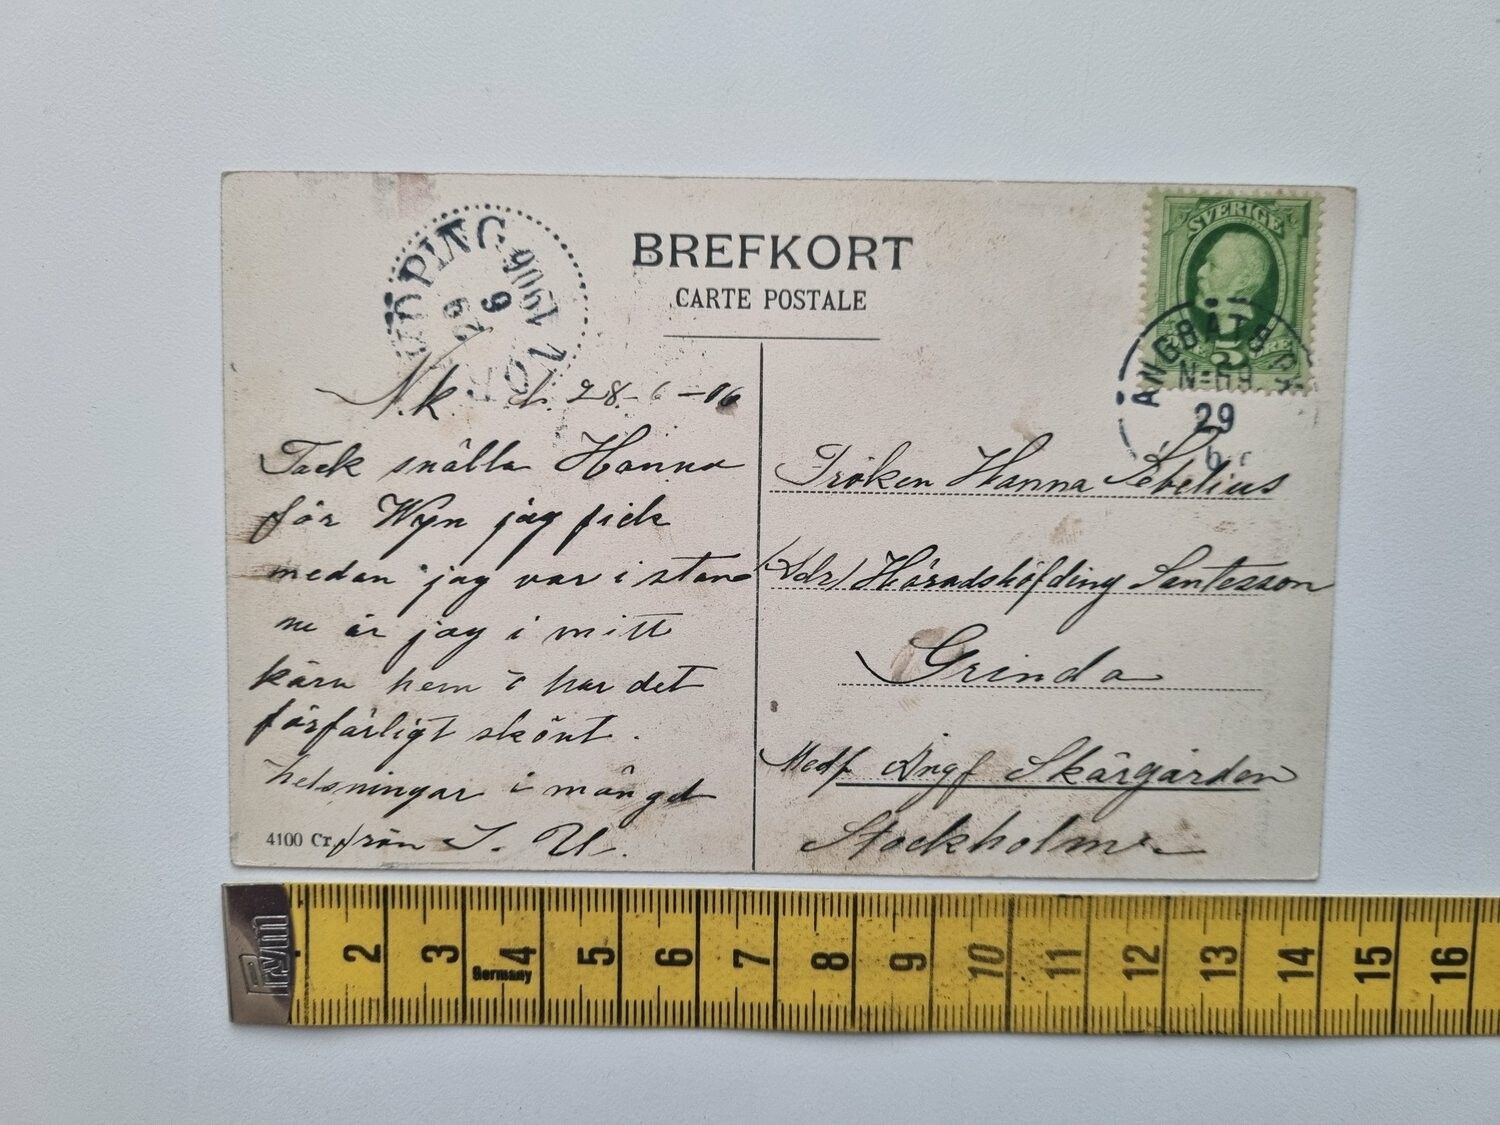 BREFKORT
CARTE POSTALE
NORRKÖPING
29
6
1906
SVERIGE
5
ÅNGBÅTS P.
N:69.
29
6
N.k. d. 28-6-06
Tack snälla Hanna
för Wyn jag fick
medan jag var i stan
nu är jag i mitt
kära hem o har det
förfärligt skönt.
helsningar i mängd
från I. U.
4100 Cr.
Fröken Hanna Sebelius
Adr/ Häradshöfding Santesson
Grinda
Medf Ångf Skärgården
Stockholm
Prym
Germany
2 3 4 5 6 7 8 9 10 11 12 13 14 15 16